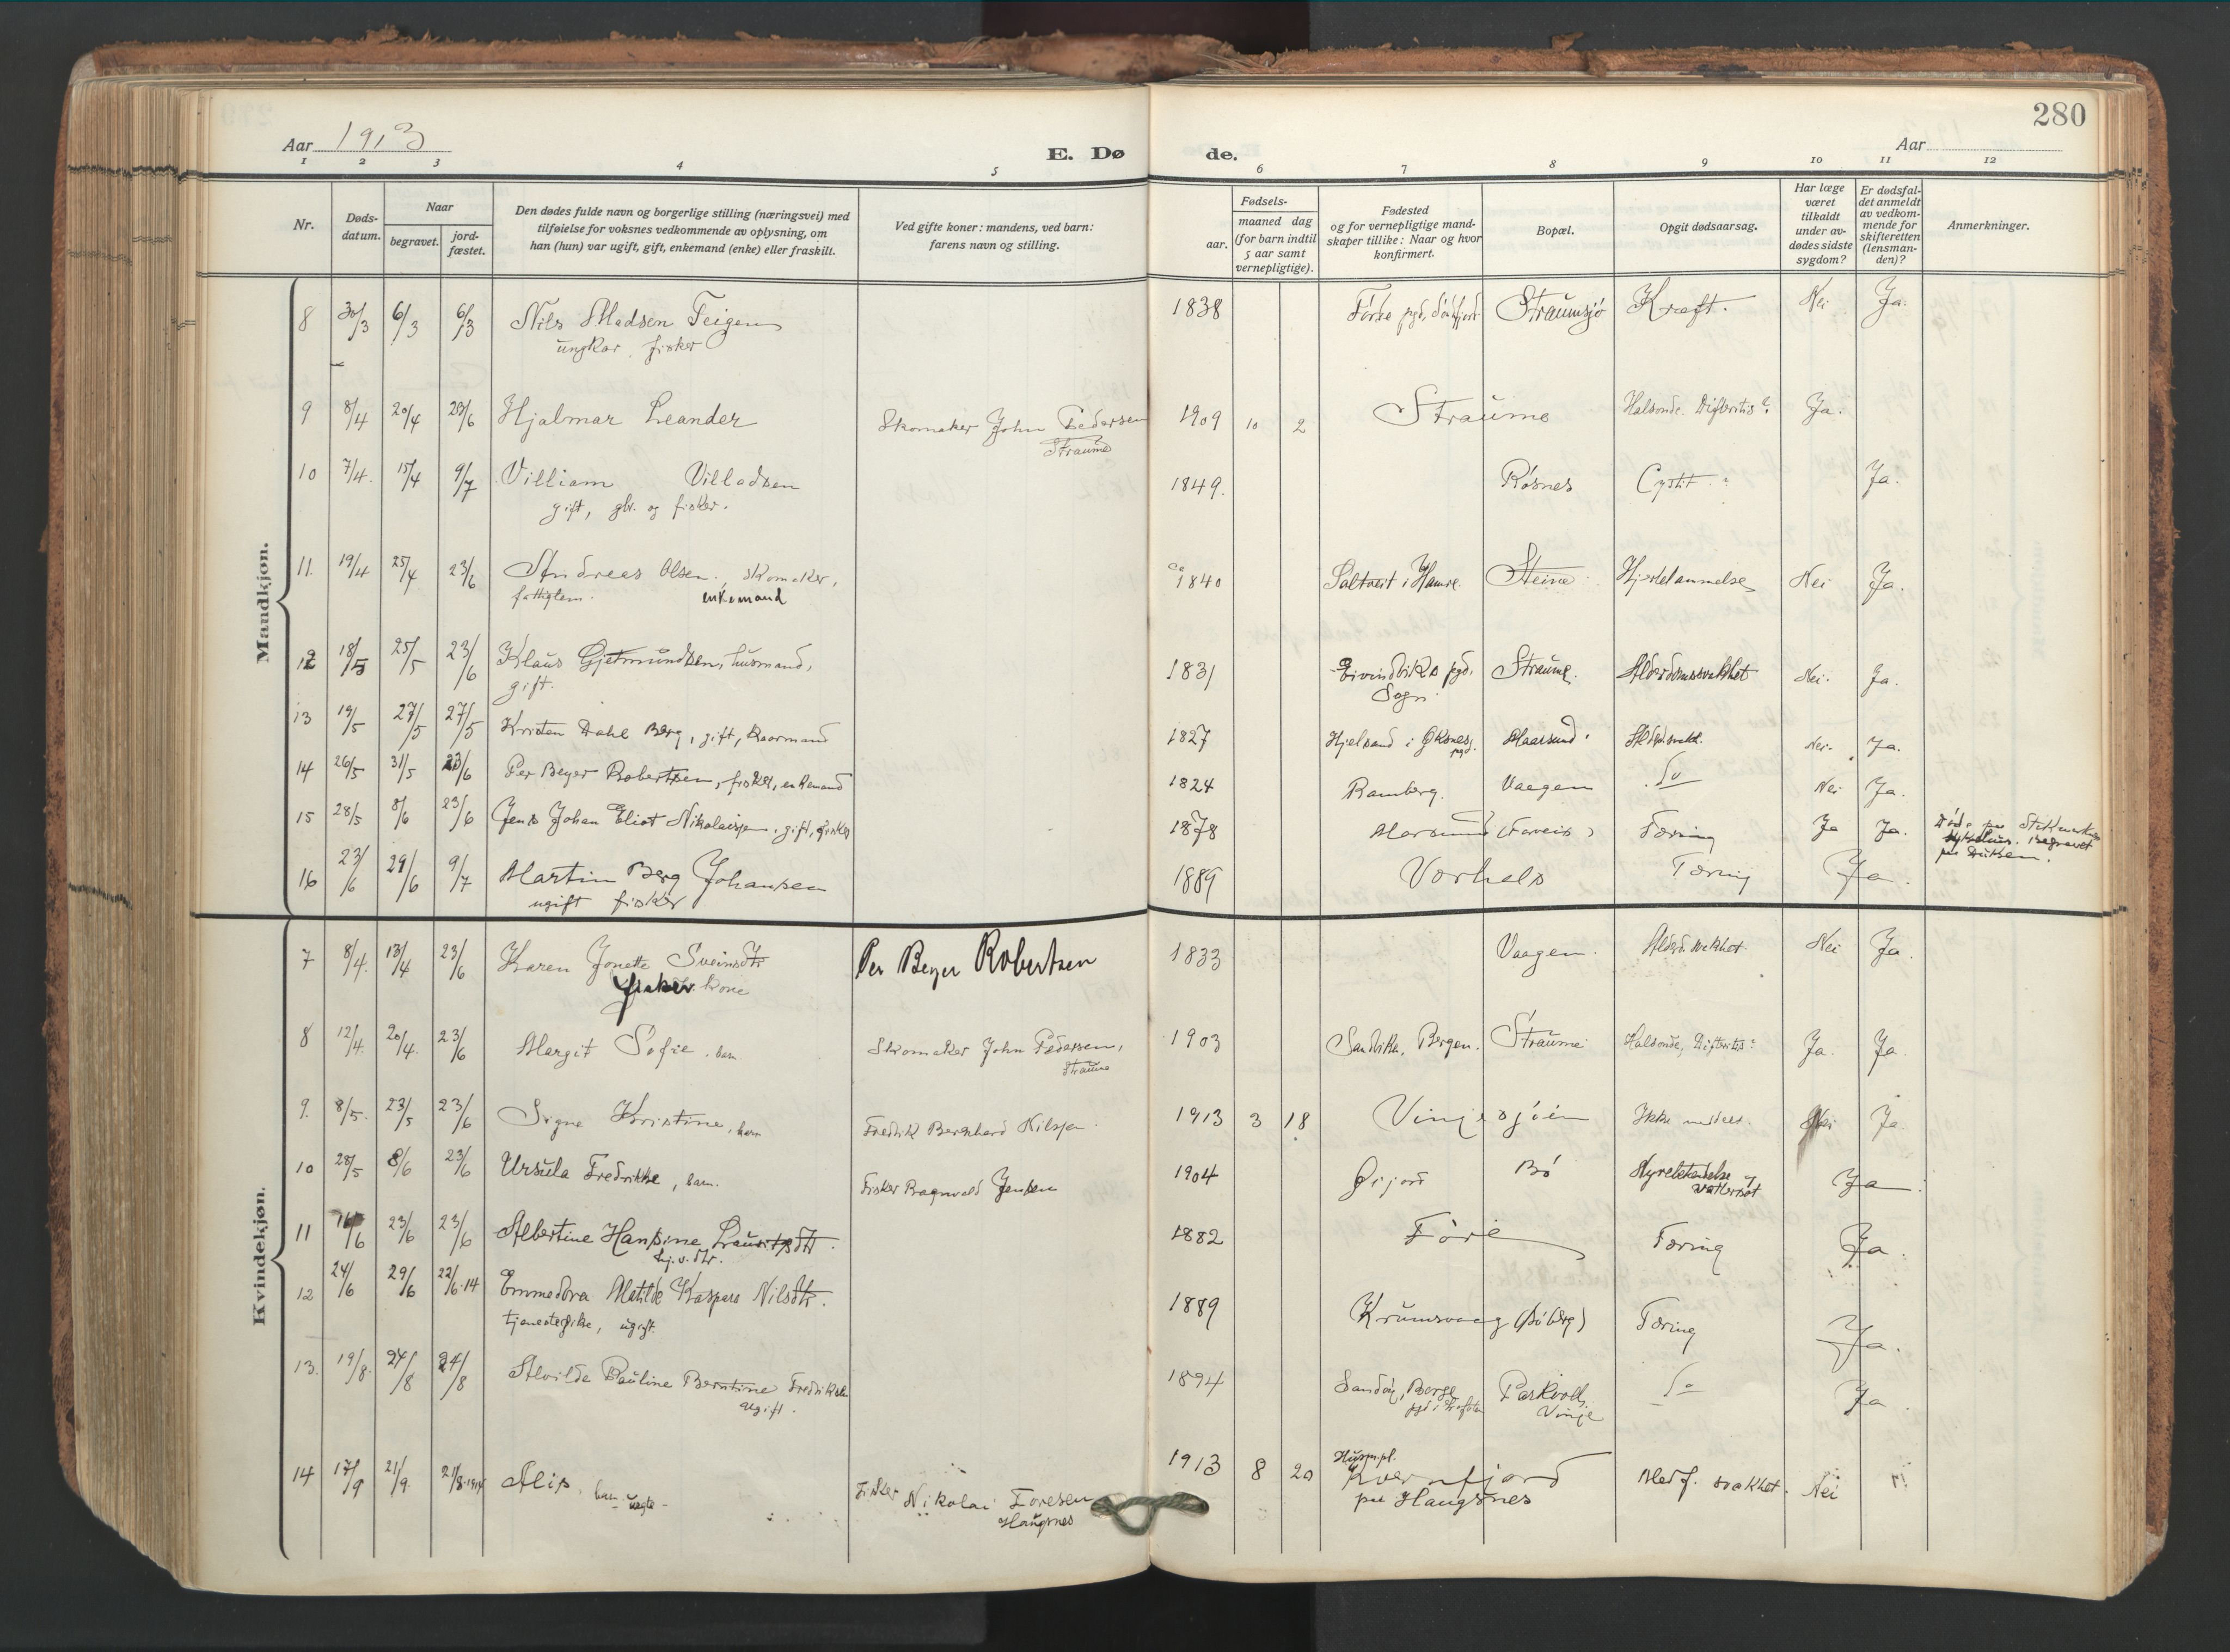 280
Aar 1913
E. Dø
de.
Aar
1 2 3 4 5 6 7 8 9 10 11 12
Nr.
Døds-
datum.
Naar
begravet.
jord-
fæstet.
Den dødes fulde navn og borgerlige stilling (næringsvei) med
tilføielse for voksnes vedkommende av oplysning, om
han (hun) var ugift, gift, enkemand (enke) eller fraskilt.
Ved gifte koner: mandens, ved barn:
farens navn og stilling.
Fødsels-
aar.
maaned dag
(for barn indtil
5 aar samt
vernepligtige).
Fødested
og for vernepligtige mand-
skaper tillike: Naar og hvor
konfirmert.
Bopæl.
Opgit dødsaarsag.
Har læge
været
tilkaldt
under av-
dødes sidste
sygdom?
Er dødsfal-
det anmeldt
av vedkom-
mende for
skifteretten
(lensman-
den)?
Anmerkninger.
Mandkjøn.
8 30/3 6/3 6/3 Nils Madsen Teigen 1838 Førke pgd, Straumsjø Kræft. Nei Ja.
ungkar, fisker
9 8/4 20/4 23/6 Hjalmar Leander Skomaker John Pedersen 1909 10 2 Straume Halsonde. Difteritis? Ja.
Straume
10 7/4. 15/4 9/7 Villiam Villadsen 1849. Røsnes Cystit. Ja.
gift, gbr. og fisker.
11. 19/4 25/4 23/6 Andreas Olsen, skomaker, ca 1840 Saltveit i Hamre Steine Hjertelammelse Nei Ja.
fattiglem. enkemand
12 18/5 25/5 23/6 Klaus Gjetmundsen, husmand, 1831 Eivindviks pgd, Straume. Alderdomssvakhet Nei. Ja.
gift. Sogn
13 19/5 27/5 27/5 Kristen Dahl Berg, gift, kaarmand 1827 Hjelsand i Øksnes pgd. Maarsund. Nei. Ja.
14 26/5 31/5 23/6 Per Beyer Robertsen, fisker, enkemand 1824 Ramberg. Vaagen Do Nei Ja.
15 28/5 8/6 23/6 Jens Johan Eliot Nikolaisen, gift, fisker 1878 Marsund Tæring Ja Ja. Døde paa Stokmarknes
Sykehus. Begravet
paa
16 23/6 29/6 9/7 Martin Berg Johansen 1889 Vorhels Tæring Ja.
ugift fisker
Kvindekjøn.
7 8/4. 13/4 23/6 Karen Jonette Sveinsdtr Per Beyer Robertsen 1833 Vaagen. Aldersvakhet. Nei Ja.
fisker kone
8 12/4. 20/4. 23/6 Margit Sofie, barn Skomaker John Pedersen, 1903 Sandvika, Bergen. Straume Halsonde, Difteritis? Ja. Ja
Straume
9. 8/5. 23/5 23/6 Signe Kristine, barn Fredrik Bernhard Nilsen. 1913 3 18 Vinjesjøen Ikke meldet. Nei Ja.
10 28/5 8/6 23/6 Ursula Fredrikke, barn. Fisker Ragnvald Jensen 1904 Gijord Bø Nyrebetændelse og
vattersot Ja.
11 16/6 23/6 23/6 Albertine Hansine Lauritsdtr. 1882 Føre Tæring Ja.
12 24/6 29/6 22/6-14 Emmedora Matilde Kaspara Nilsdtr. 1889 Krumsvaag Tæring Ja.
tjenestepike, ugift.
13. 19/8. 24/8 24/8 Alvilde Pauline Berntine Fredriksen 1894 Sandøy, Borge Parkvoll, Do Ja.
ugift. Vinje
14 17/9 21/9. 21/8-1914 Alis, barn, uegte Fisker Nikolai Toresen 1913 8 20 Husm.pl. Kvernfjord Medf. svakhet. Nei
Haugsnes paa Haugsnes